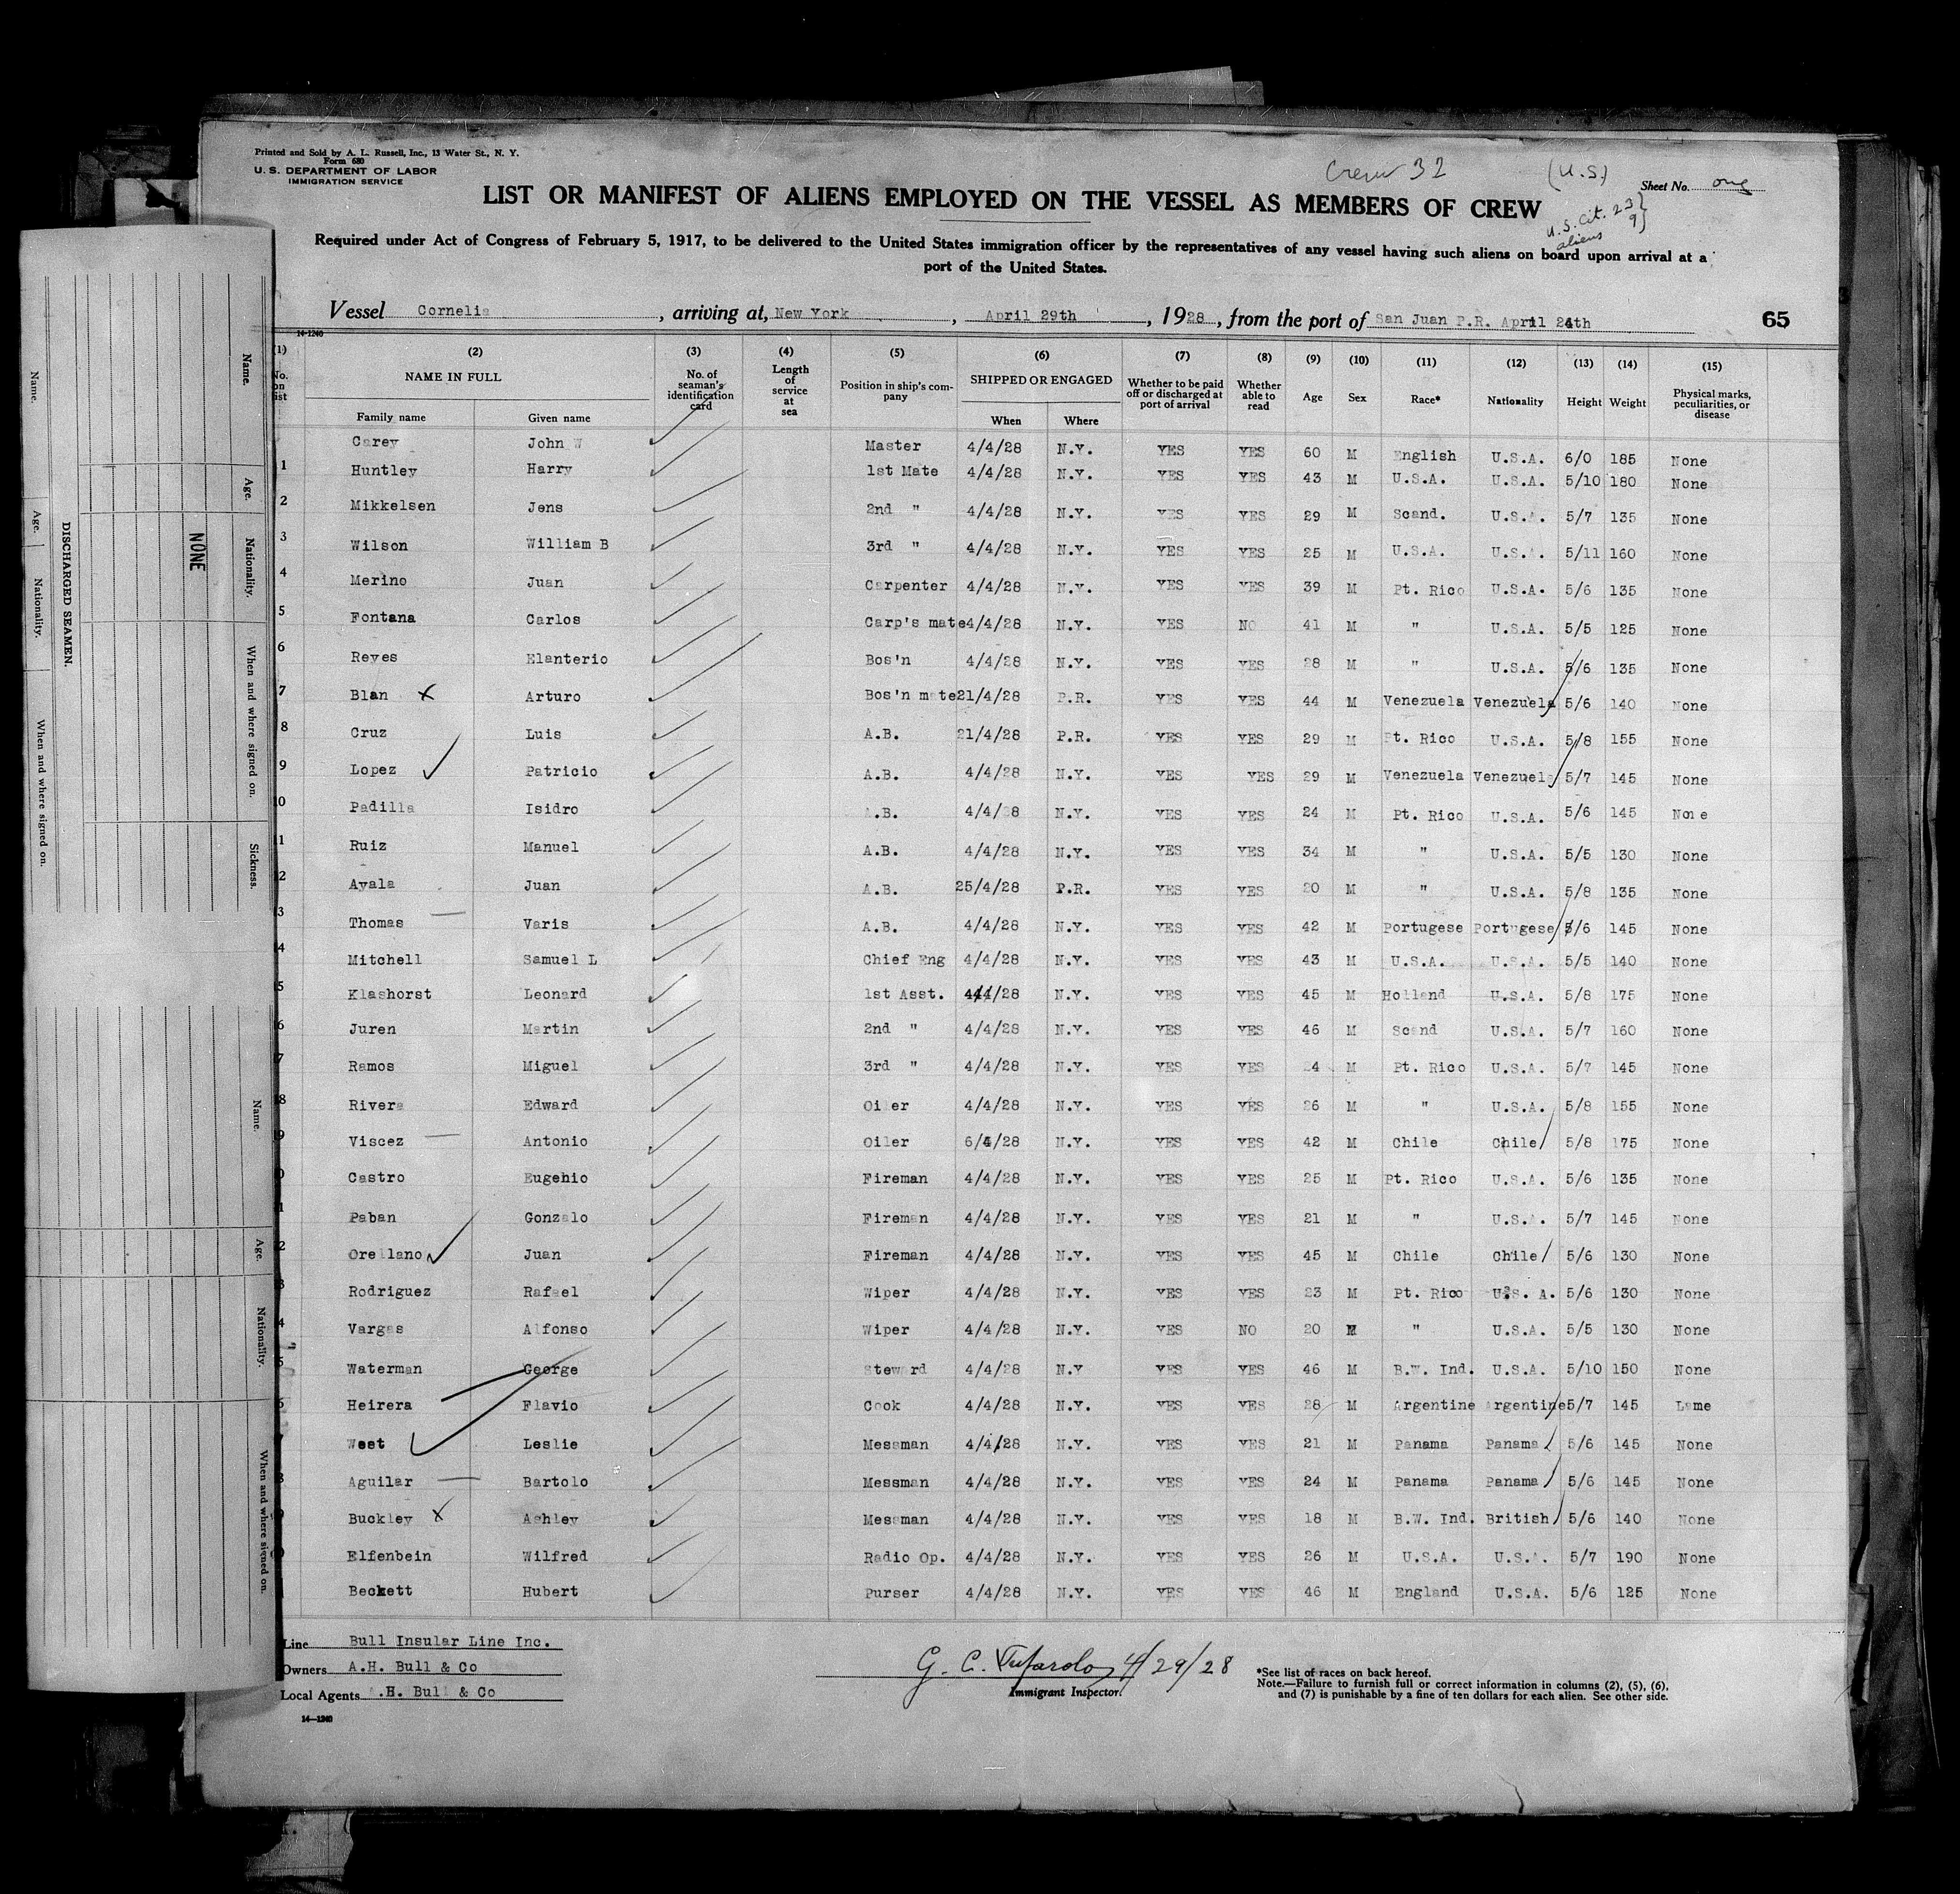 Printed and Sold by A. L. Russell, Inc., 13 Water St., N. Y.
Form 680
U. S. DEPARTMENT OF LABOR
IMMIGRATION SERVICE
Crew 32
(U.S)
Sheet No. one
LIST OR MANIFEST OF ALIENS EMPLOYED ON THE VESSEL AS MEMBERS OF CREW
U.S. Cit. 23
aliens 9
Required under Act of Congress of February 5, 1917, to be delivered to the United States immigration officer by the representatives of any vessel having such aliens on board upon arrival at a
port of the United States.
Vessel Cornelia, arriving at, New York, April 29th, 1928, from the port of San Juan P.R. April 24th
65
14-1240
(1) (2) (3) (4) (5) (6) (7) (8) (9) (10) (11) (12) (13) (14) (15)
No. on list NAME IN FULL Family name Given name No. of seaman's identification card Length of service at sea Position in ship's company SHIPPED OR ENGAGED When Where Whether to be paid off or discharged at port of arrival Whether able to read Age Sex Race* Nationality Height Weight Physical marks, peculiarities, or disease
Carey John W Master 4/4/28 N.Y. YES YES 60 M English U.S.A. 6/0 185 None
1 Huntley Harry 1st Mate 4/4/28 N.Y. YES YES 43 M U.S.A. U.S.A. 5/10 180 None
2 Mikkelsen Jens 2nd " 4/4/28 N.Y. YES YES 29 M Scand. U.S.A. 5/7 135 None
3 Wilson William B 3rd " 4/4/28 N.Y. YES YES 25 M U.S.A. U.S.A. 5/11 160 None
4 Merino Juan Carpenter 4/4/28 N.Y. YES YES 39 M Pt. Rico U.S.A. 5/6 135 None
5 Fontana Carlos Carp's mate 4/4/28 N.Y. YES NO 41 M " U.S.A. 5/5 125 None
6 Reyes Elanterio Bos'n 4/4/28 N.Y. YES YES 28 M " U.S.A. 5/6 135 None
7 Blan x Arturo Bos'n mate 21/4/28 P.R. YES YES 44 M Venezuela Venezuela 5/6 140 None
8 Cruz Luis A.B. 21/4/28 P.R. YES YES 29 M Pt. Rico U.S.A. 5/8 155 None
9 Lopez Patricio A.B. 4/4/28 N.Y. YES YES 29 M Venezuela Venezuela 5/7 145 None
10 Padilla Isidro A.B. 4/4/28 N.Y. YES YES 24 M Pt. Rico U.S.A. 5/6 145 None
1 Ruiz Manuel A.B. 4/4/28 N.Y. YES YES 34 M " U.S.A. 5/5 130 None
2 Ayala Juan A.B. 25/4/28 P.R. YES YES 20 M " U.S.A. 5/8 135 None
3 Thomas Varis A.B. 4/4/28 N.Y. YES YES 42 M Portugese Portugese 5/6 145 None
4 Mitchell Samuel L Chief Eng 4/4/28 N.Y. YES YES 43 M U.S.A. U.S.A. 5/5 140 None
5 Klashorst Leonard 1st Asst. 4/4/28 N.Y. YES YES 45 M Holland U.S.A. 5/8 175 None
6 Juren Martin 2nd " 4/4/28 N.Y. YES YES 46 M Scand U.S.A. 5/7 160 None
7 Ramos Miguel 3rd " 4/4/28 N.Y. YES YES 4 M Pt. Rico U.S.A. 5/7 145 None
8 Rivera Edward Oiler 4/4/28 N.Y. YES YES 26 M " U.S.A. 5/8 155 None
9 Viscez Antonio Oiler 6/4/28 N.Y. YES YES 42 M Chile Chile 5/8 175 None
0 Castro Eugenio Fireman 4/4/28 N.Y. YES YES 25 M Pt. Rico U.S.A. 5/6 135 None
1 Paban Gonzalo Fireman 4/4/28 N.Y. YES YES 21 M " U.S.A. 5/7 145 None
2 Orellano Juan Fireman 4/4/28 N.Y. YES YES 45 M Chile Chile 5/6 130 None
3 Rodriguez Rafael Wiper 4/4/28 N.Y. YES YES 23 M Pt. Rico U.S. A. 5/6 130 None
4 Vargas Alfonso Wiper 4/4/28 N.Y. YES NO 20 M " U.S.A. 5/5 130 None
5 Waterman George Steward 4/4/28 N.Y YES YES 46 M B.W. Ind. U.S.A. 5/10 150 None
6 Heirera Flavio Cook 4/4/28 N.Y. YES YES 28 M Argentine Argentine 5/7 145 Lame
7 West Leslie Messman 4/4/28 N.Y. YES YES 21 M Panama Panama 5/6 145 None
8 Aguilar Bartolo Messman 4/4/28 N.Y. YES YES 24 M Panama Panama 5/6 145 None
9 Buckley x Ashley Messman 4/4/28 N.Y. YES YES 18 M B.W. Ind. British 5/6 140 None
0 Elfenbein Wilfred Radio Op. 4/4/28 N.Y. YES YES 26 M U.S.A. U.S.A. 5/7 190 None
Beckett Hubert Purser 4/4/28 N.Y. YES YES 46 M England U.S.A. 5/6 125 None
Line Bull Insular Line Inc.
Owners A.H. Bull & Co
Local Agents A.H. Bull & Co
14-1240
G. C. 4/29/28
Immigrant Inspector.
*See list of races on back hereof.
Note.—Failure to furnish full or correct information in columns (2), (5), (6),
and (7) is punishable by a fine of ten dollars for each alien. See other side.
DISCHARGED SEAMEN.
Name. Age. Nationality. When and where signed on. Sickness.
NONE
Name. Age. Nationality. When and where signed on.
Name. Age. Nationality. When and where signed on.